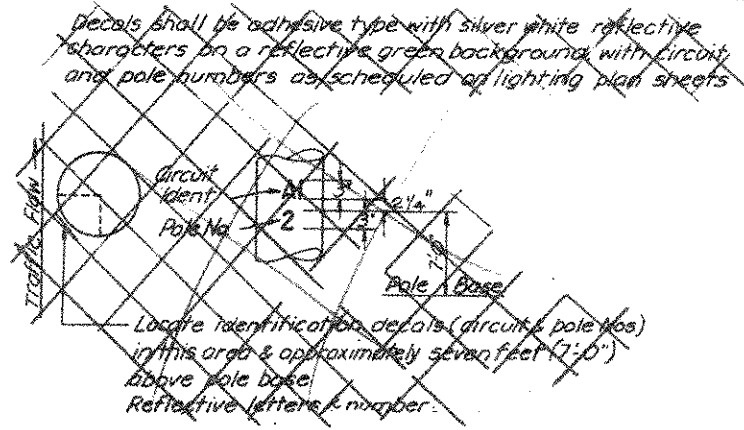 Decals shall be adhesive type with silver white reflective
characters on a reflective green background with circuit
and pole numbers as scheduled on lighting plan sheets
Traffic Flow
Circuit
Ident
A
3"
2 1/4"
Pole No
2
3"
7'-0"
Pole Base
Locate identification decals (circuit & pole Nos)
in this area & approximately seven feet (7'-0")
above pole base
Reflective letters & number.